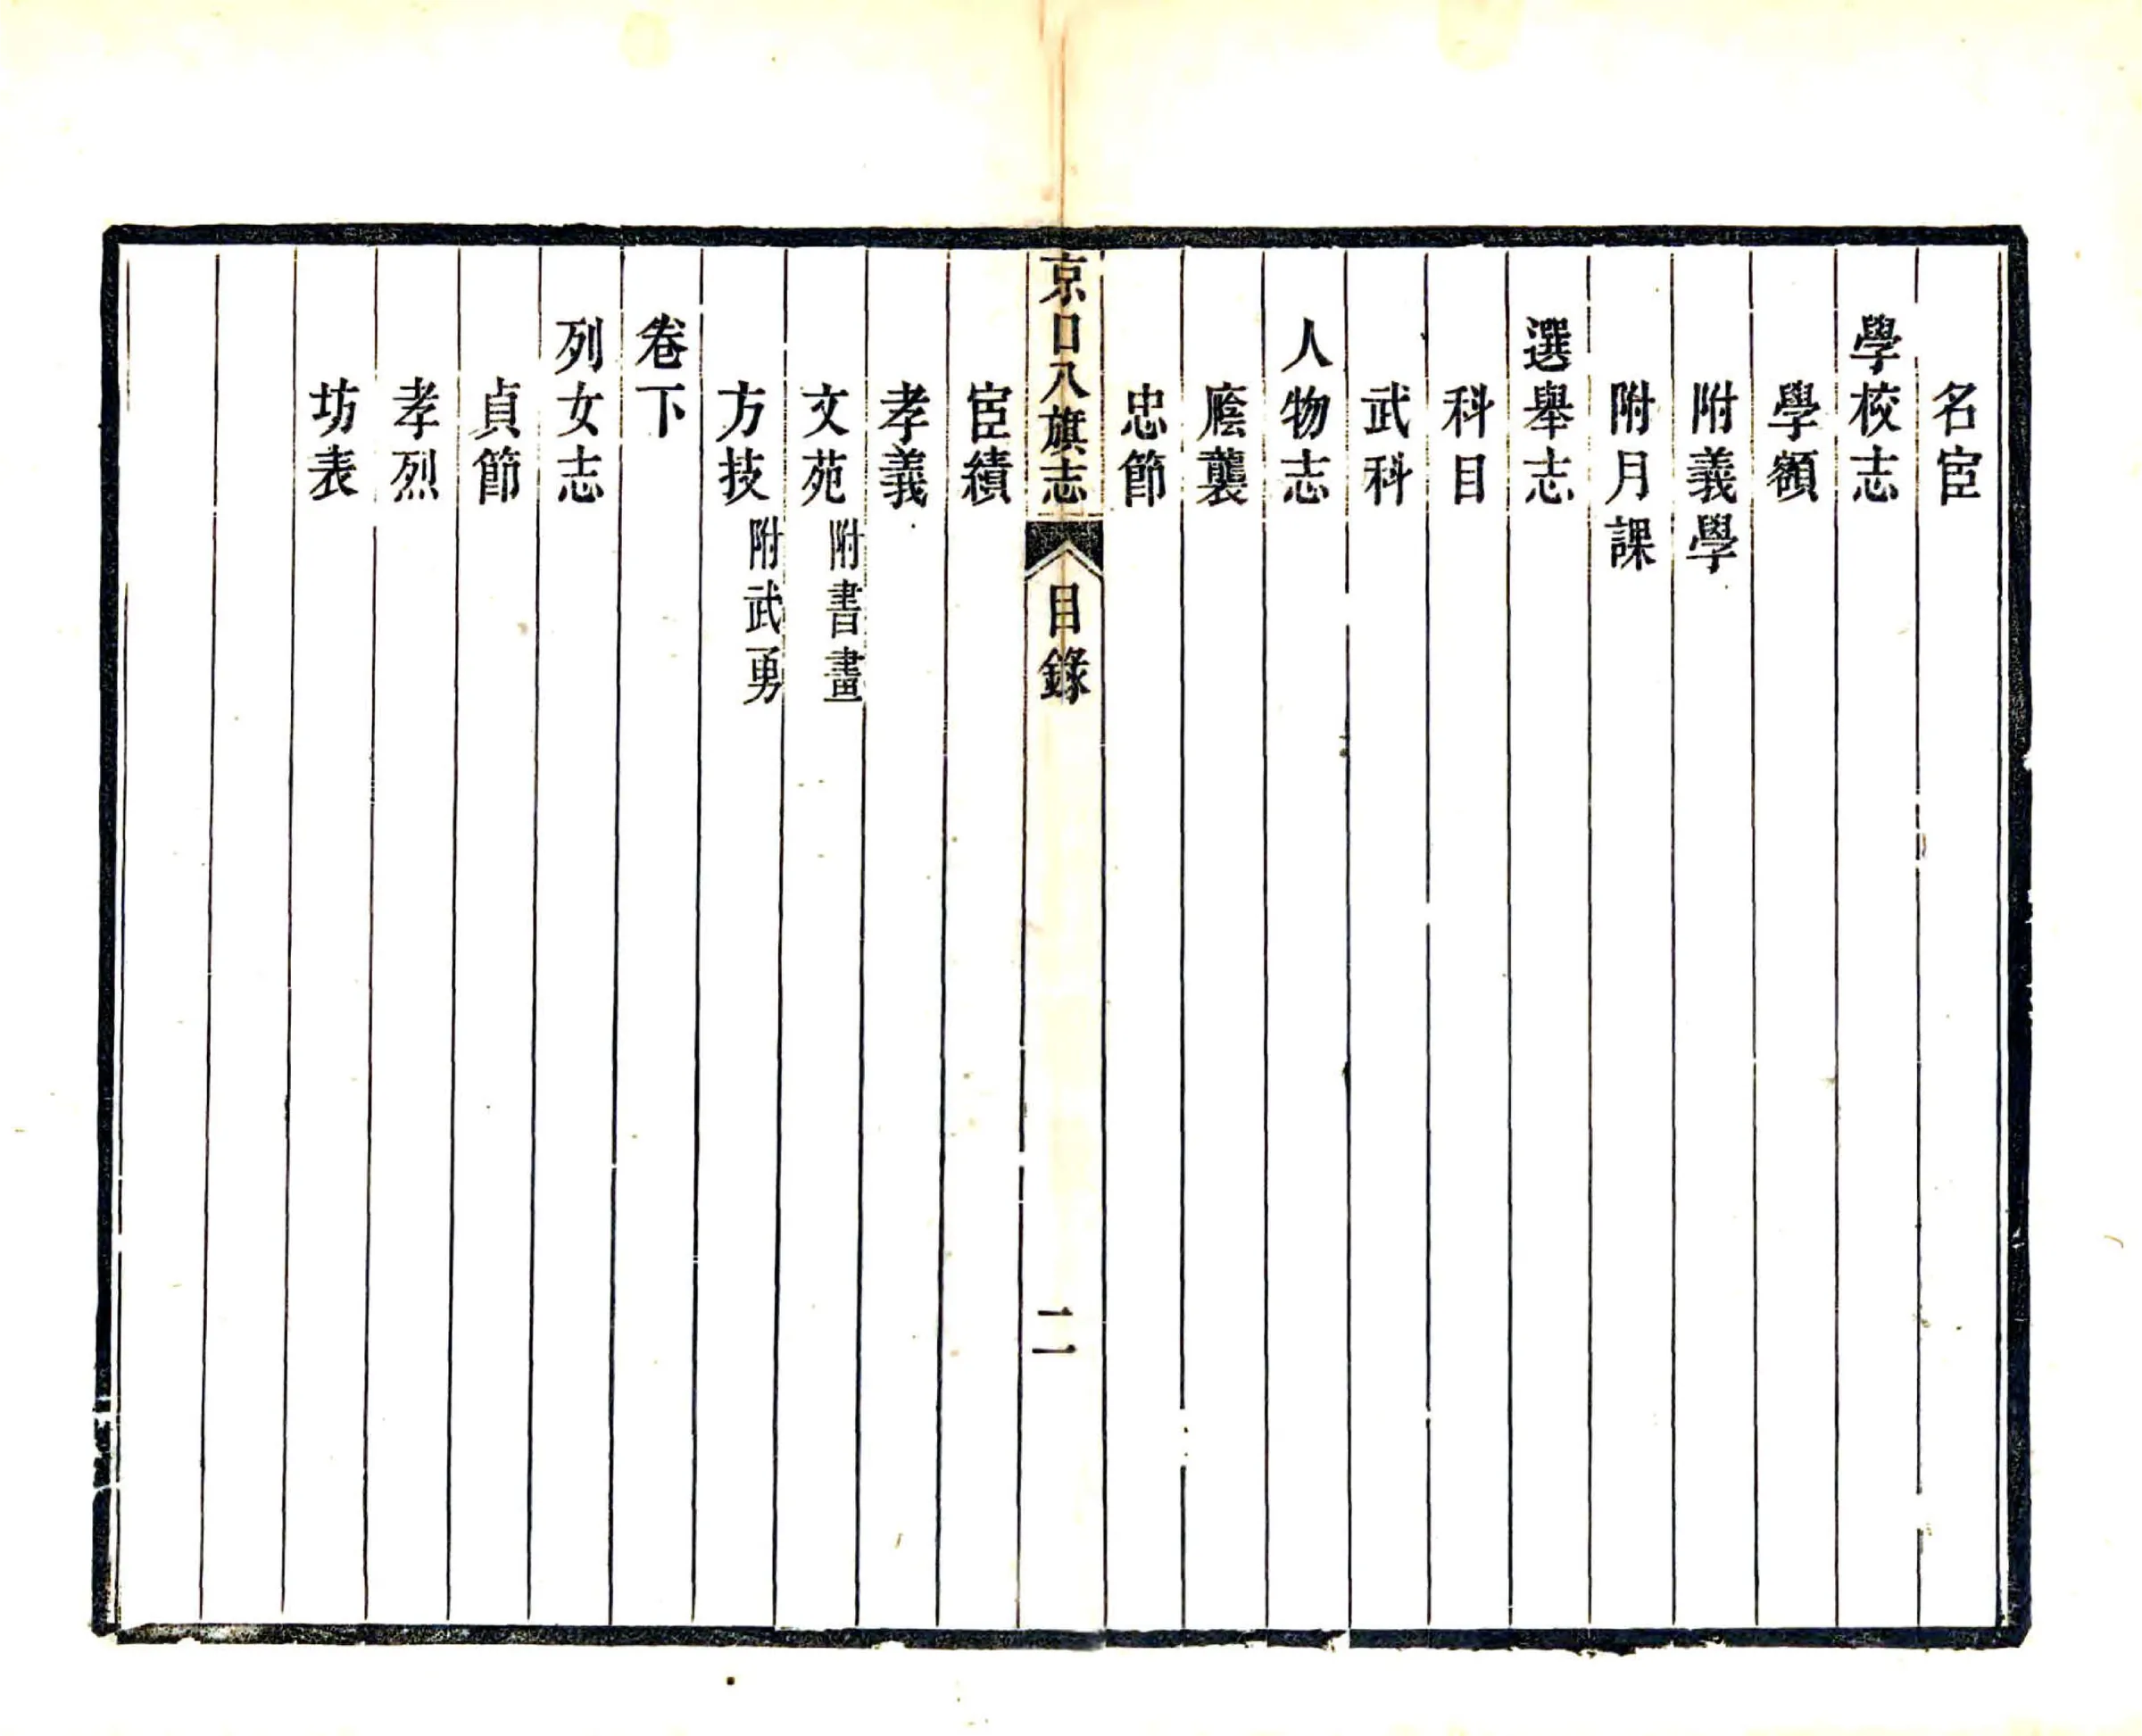 名宦
學校志
學額
附義學
附月課
選舉志
科目
武科
人物志
廕襲
忠節
京口八旗志 目錄 二
宦績
孝義
文苑附書畫
方技附武勇
卷下
列女志
貞節
孝烈
坊表